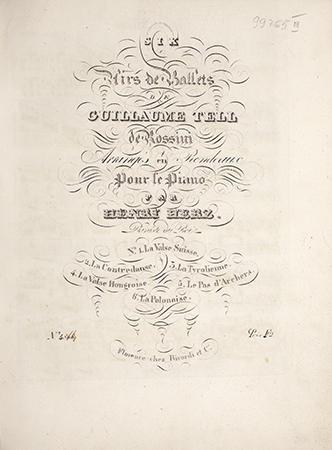 99765 III
SIX
Airs de Ballets
DE
GUILLAUME TELL
de Rossini
Arrangés en Rondeaux
Pour le Piano
PAR
HENRI HERZ.
N.º 1. La Valse Suisse.
2. La Contredanse. 3. La Tyrolienne.
4. La Valse Hongroise. 5. Le Pas d'Archers.
6. La Polonaise.
Florence chez Ricordi et C.